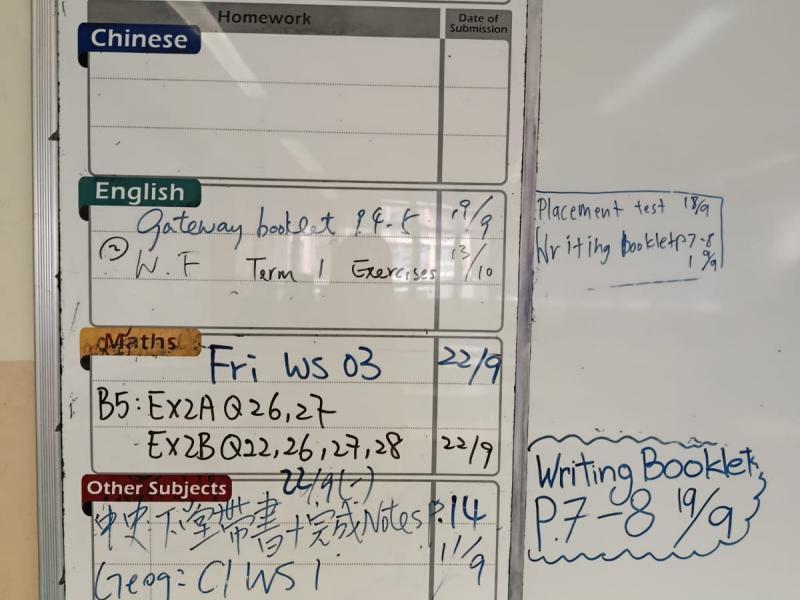 Homework Date of Submission
Chinese
English
Gateway booklet P.4-5 19/9
② W.F Term 1 Exercises 13/10
Placement test 18/9
Writing booklet P7-8
19/9
Maths
Fri WS 03 22/9
B5: EX2A Q26,27
EX2B Q22,26,27,28 22/9
Other Subjects 22/9(一)
中史:下堂帶書+完成Notes P.14
Geog: C1 WS 1 11/9
Writing Booklet
P.7-8 19/9